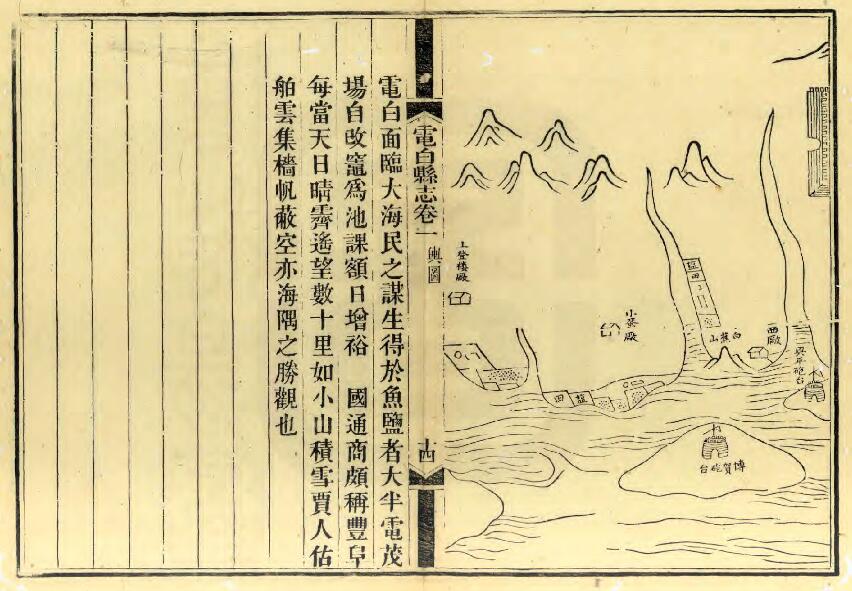 博賀砲台
西廠
白蕉山
小登廠
上登樓廠
電白縣志卷一
輿圖
十四
電白面臨大海民之謀生得於魚鹽者大半電茂
塲自改竈爲池課額日增裕　國通商頗稱豐阜
每當天日晴霽遙望數十里如小山積雪賈人估
舶雲集檣帆蔽空亦海隅之勝觀也